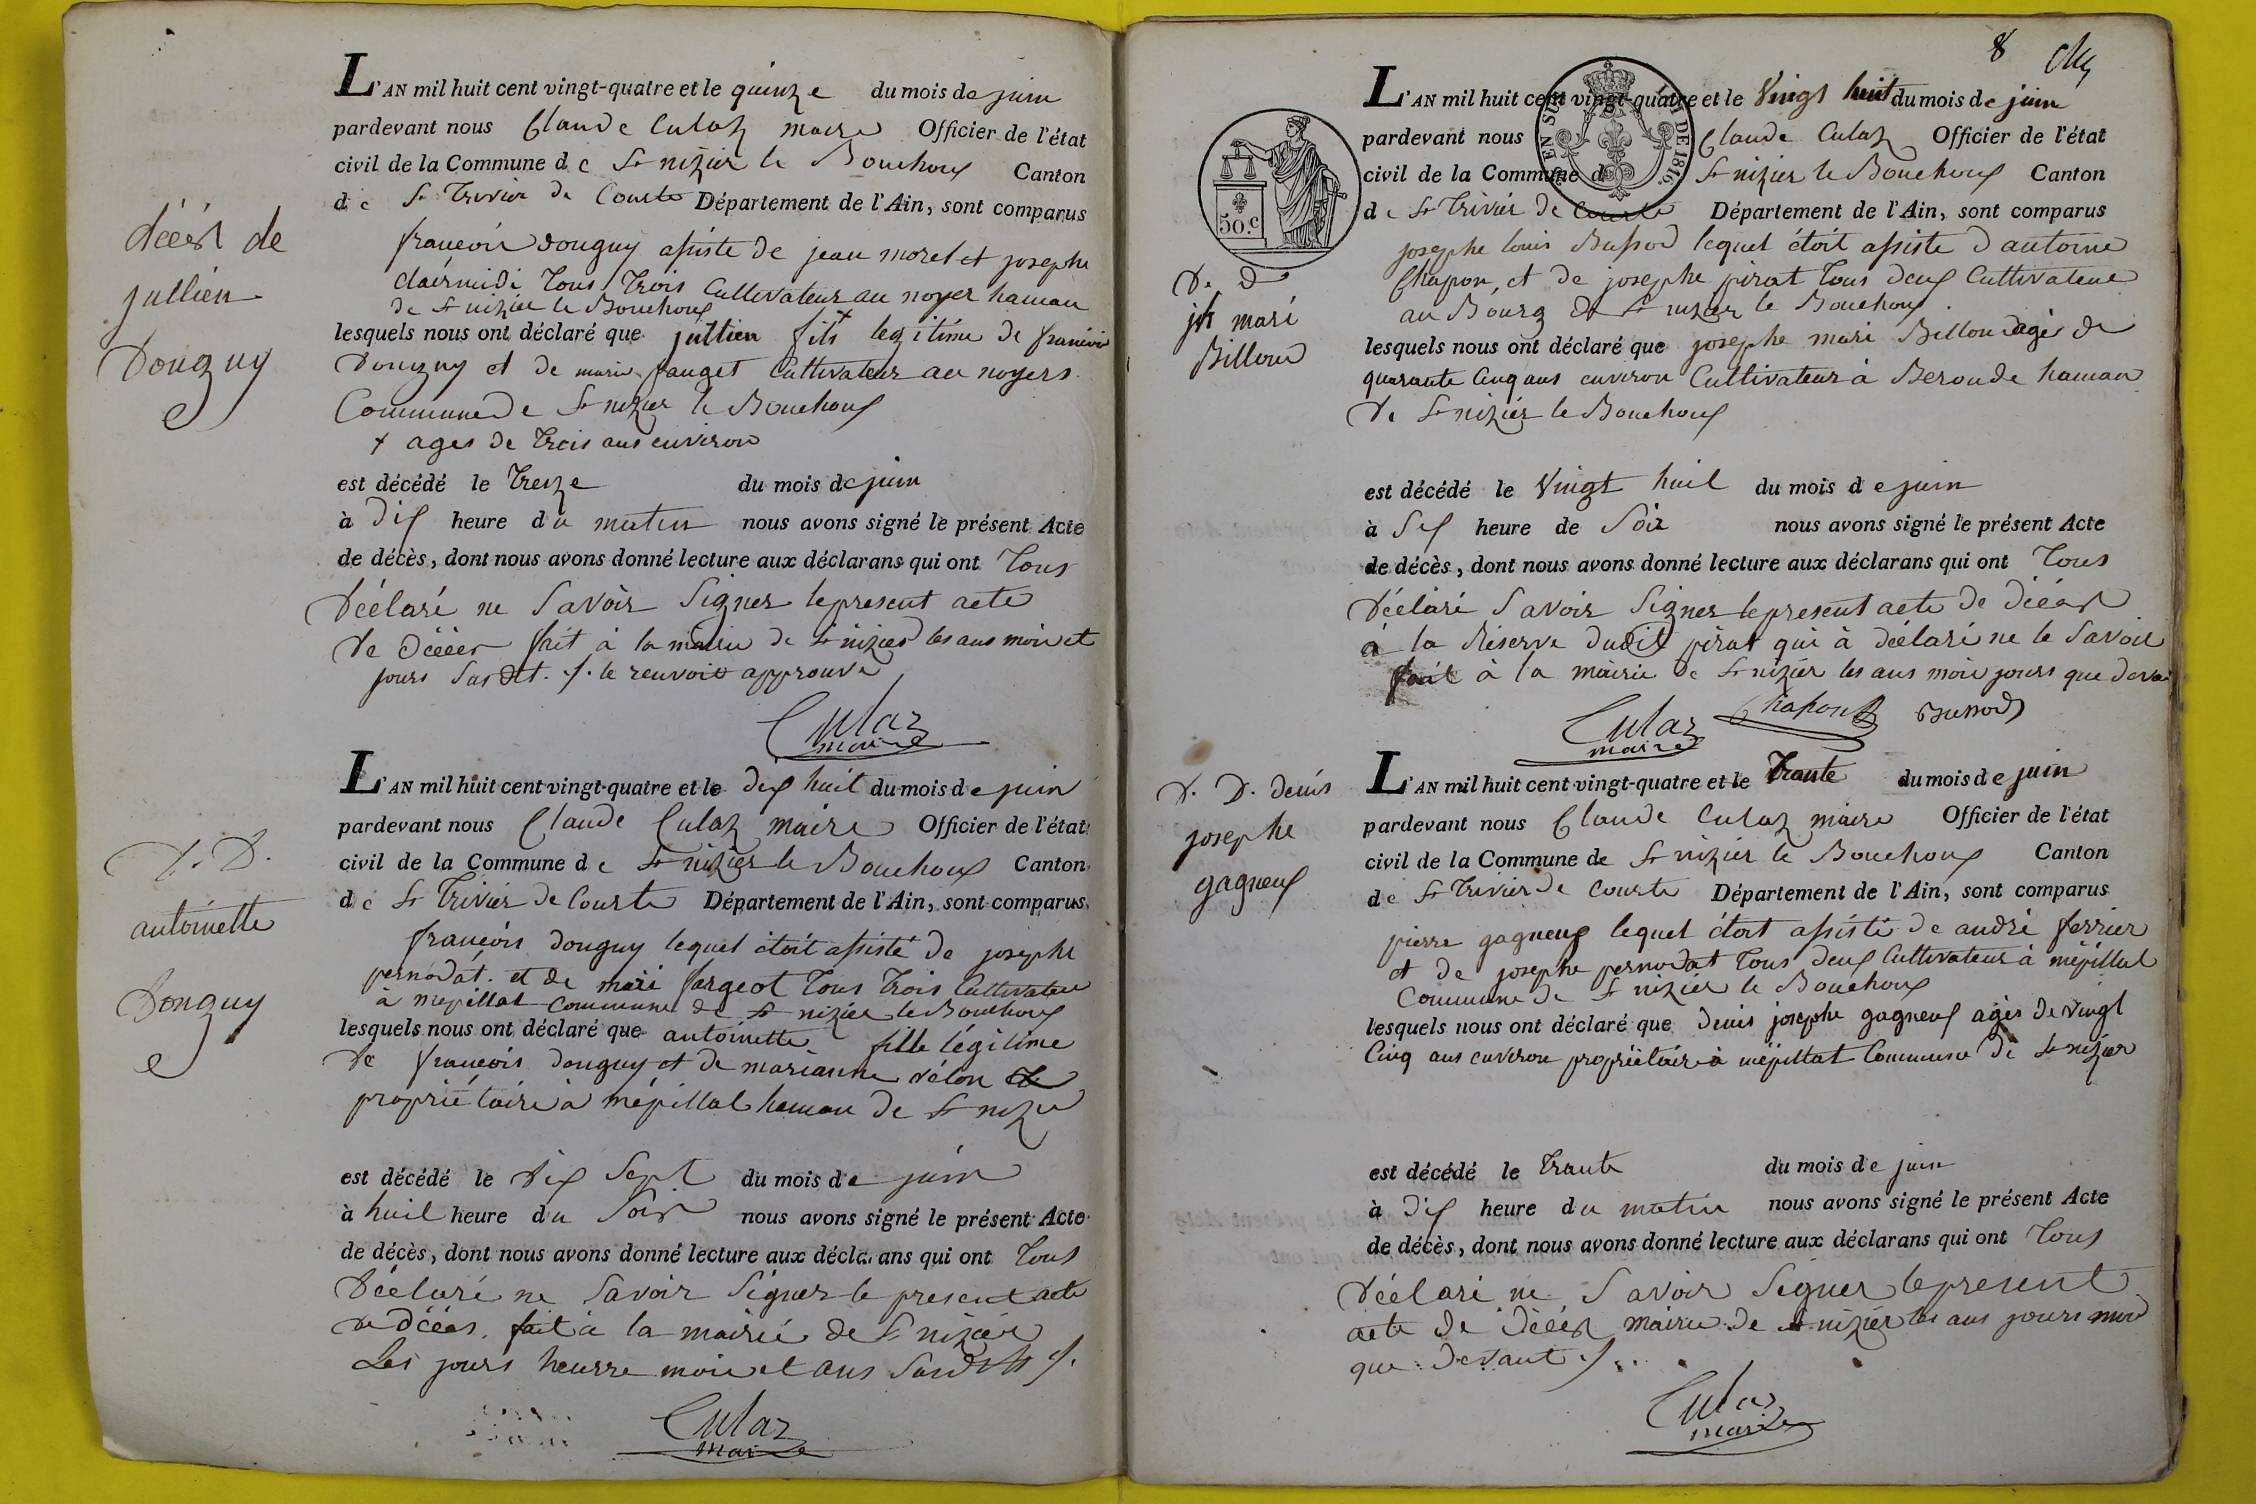 décès de
jullien
Donguy
L'AN mil huit cent vingt-quatre et le quinze du mois de juin
pardevant nous Claude Culaz maire Officier de l'état
civil de la Commune de St nizier le Bouchoux Canton
de St Trivier de Courte Département de l'Ain, sont comparus
françois donguy assiste de jean morel et josephe
clairmidi Tous Trois Cultivateur au noyer hamau
de St nizier le Bouchoux
lesquels nous ont déclaré que jullien + fils legitime de françois
Donguy et de marie pauget Cultivateur au noyers
Commune de St nizier le Bouchoux
+ ages de Trois ans environ
est décédé le Treize du mois de juin
à Dix heure du matin nous avons signé le présent Acte
de décès, dont nous avons donné lecture aux déclarans qui ont Tous
Déclaré ne Savoir Signer le present acte
de décès fait à la mairie de St nizier les ans mois et
jours Susdit ./. le renvoit approuvé
Culaz
maire
D. D.
antoinette
Donguy
L'AN mil huit cent vingt-quatre et le dix huit du mois de juin
pardevant nous Claude Culaz maire Officier de l'état
civil de la Commune de St nizier le Bouchoux Canton
de St Trivier de Courte Département de l'Ain, sont comparus
françois donguy lequel étoit assisté de josephe
pernodat et de mari fargeot Tous Trois Cultivateur
à mépillat commune de St nizier le Bouchoux
lesquels nous ont déclaré que antoinette fille légitime
de françois donguy et de marianne vélon
propriétaire à mépillat hamau de St nizier
est décédé le Dix Sept du mois de juin
à huit heure du Soir nous avons signé le présent Acte
de décès, dont nous avons donné lecture aux déclarans qui ont Tous
Déclaré ne Savoir Signer le present acte
de décès fait à la mairie de St nizier
Les jours heurre mois et ans Susdits ./.
Culaz
maire
8
50.c
EN SUS
LOI DE 1816.
D. D
jh mari
Billoud
L'AN mil huit cent vingt-quatre et le Vingt huit du mois de juin
pardevant nous Claude Culaz Officier de l'état
civil de la Commune d St nizier le Bouchoux Canton
de St Trivier de Courte Département de l'Ain, sont comparus
josephe louis Bussod lequel étoit assiste d antoine
Chapon, et de josephe pirat Tous deux Cultivateur
au Bourg de St nizier le Bouchoux
lesquels nous ont déclaré que josephe mari Billoud agé de
quarante Cinq ans environ Cultivateur à Beronde hamau
de St nizier le Bouchoux
est décédé le Vingt huit du mois de juin
à Six heure de Soir nous avons signé le présent Acte
de décès, dont nous avons donné lecture aux déclarans qui ont Tous
Déclaré Savoir Signer le present acte de décès
à la Réserve dudit pirat qui à déclaré ne le Savoir
fait à la mairie de St nizier les ans mois jours que devan
Culaz
maire
Chapon
Bussod
D. D. denis
josephe
gagneux
L'AN mil huit cent vingt-quatre et le Trante du mois de juin
pardevant nous Claude Culaz maire Officier de l'état
civil de la Commune de St nizier le Bouchoux Canton
de St Trivier de Courte Département de l'Ain, sont comparus
pierre gagneux lequel étoit assisté de andré ferrier
et de josephe pernodat Tous deux Cultivateur à mépillat
Commune de St nizier le Bouchoux
lesquels nous ont déclaré que denis josephe gagneux agés de vingt
Cinq ans environ propriétaire à mépillat Commune de St nizier
est décédé le Trante du mois de juin
à Dix heure du matin nous avons signé le présent Acte
de décès, dont nous avons donné lecture aux déclarans qui ont Tous
Déclaré ne Savoir Signer le present
acte de décès mairie de St nizier les ans jours mois
que devant ./.
Culaz
maire